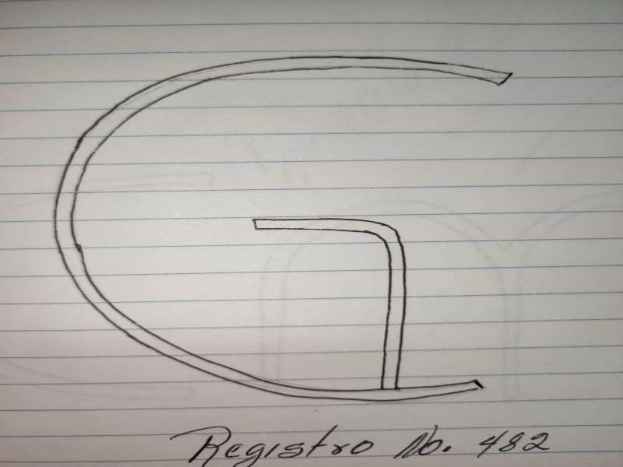 G
Registro No. 482